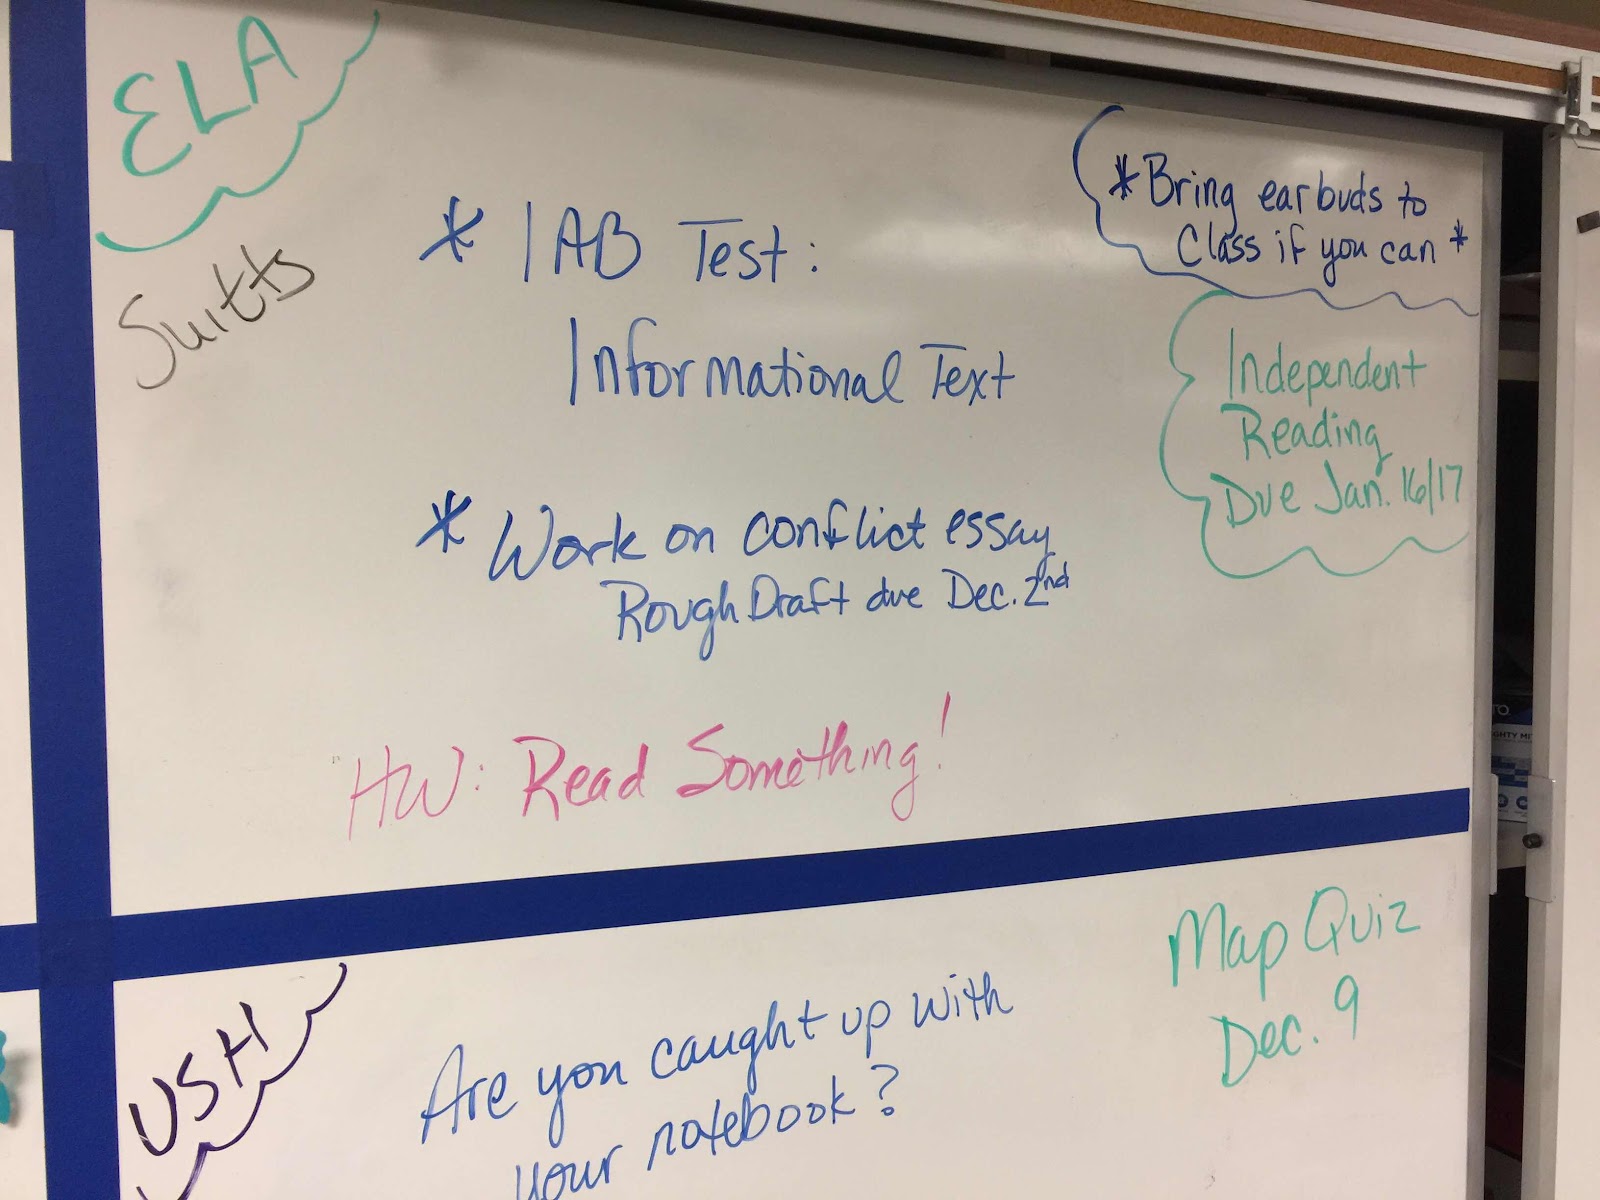 ELA
Suitts
* IAB Test:
Informational Text
* Work on conflict essay
Rough Draft due Dec. 2nd
HW: Read Something!
*Bring earbuds to
Class if you can *
Independent
Reading
Due Jan. 16/17
USH
Are you caught up with
your notebook?
Map Quiz
Dec. 9